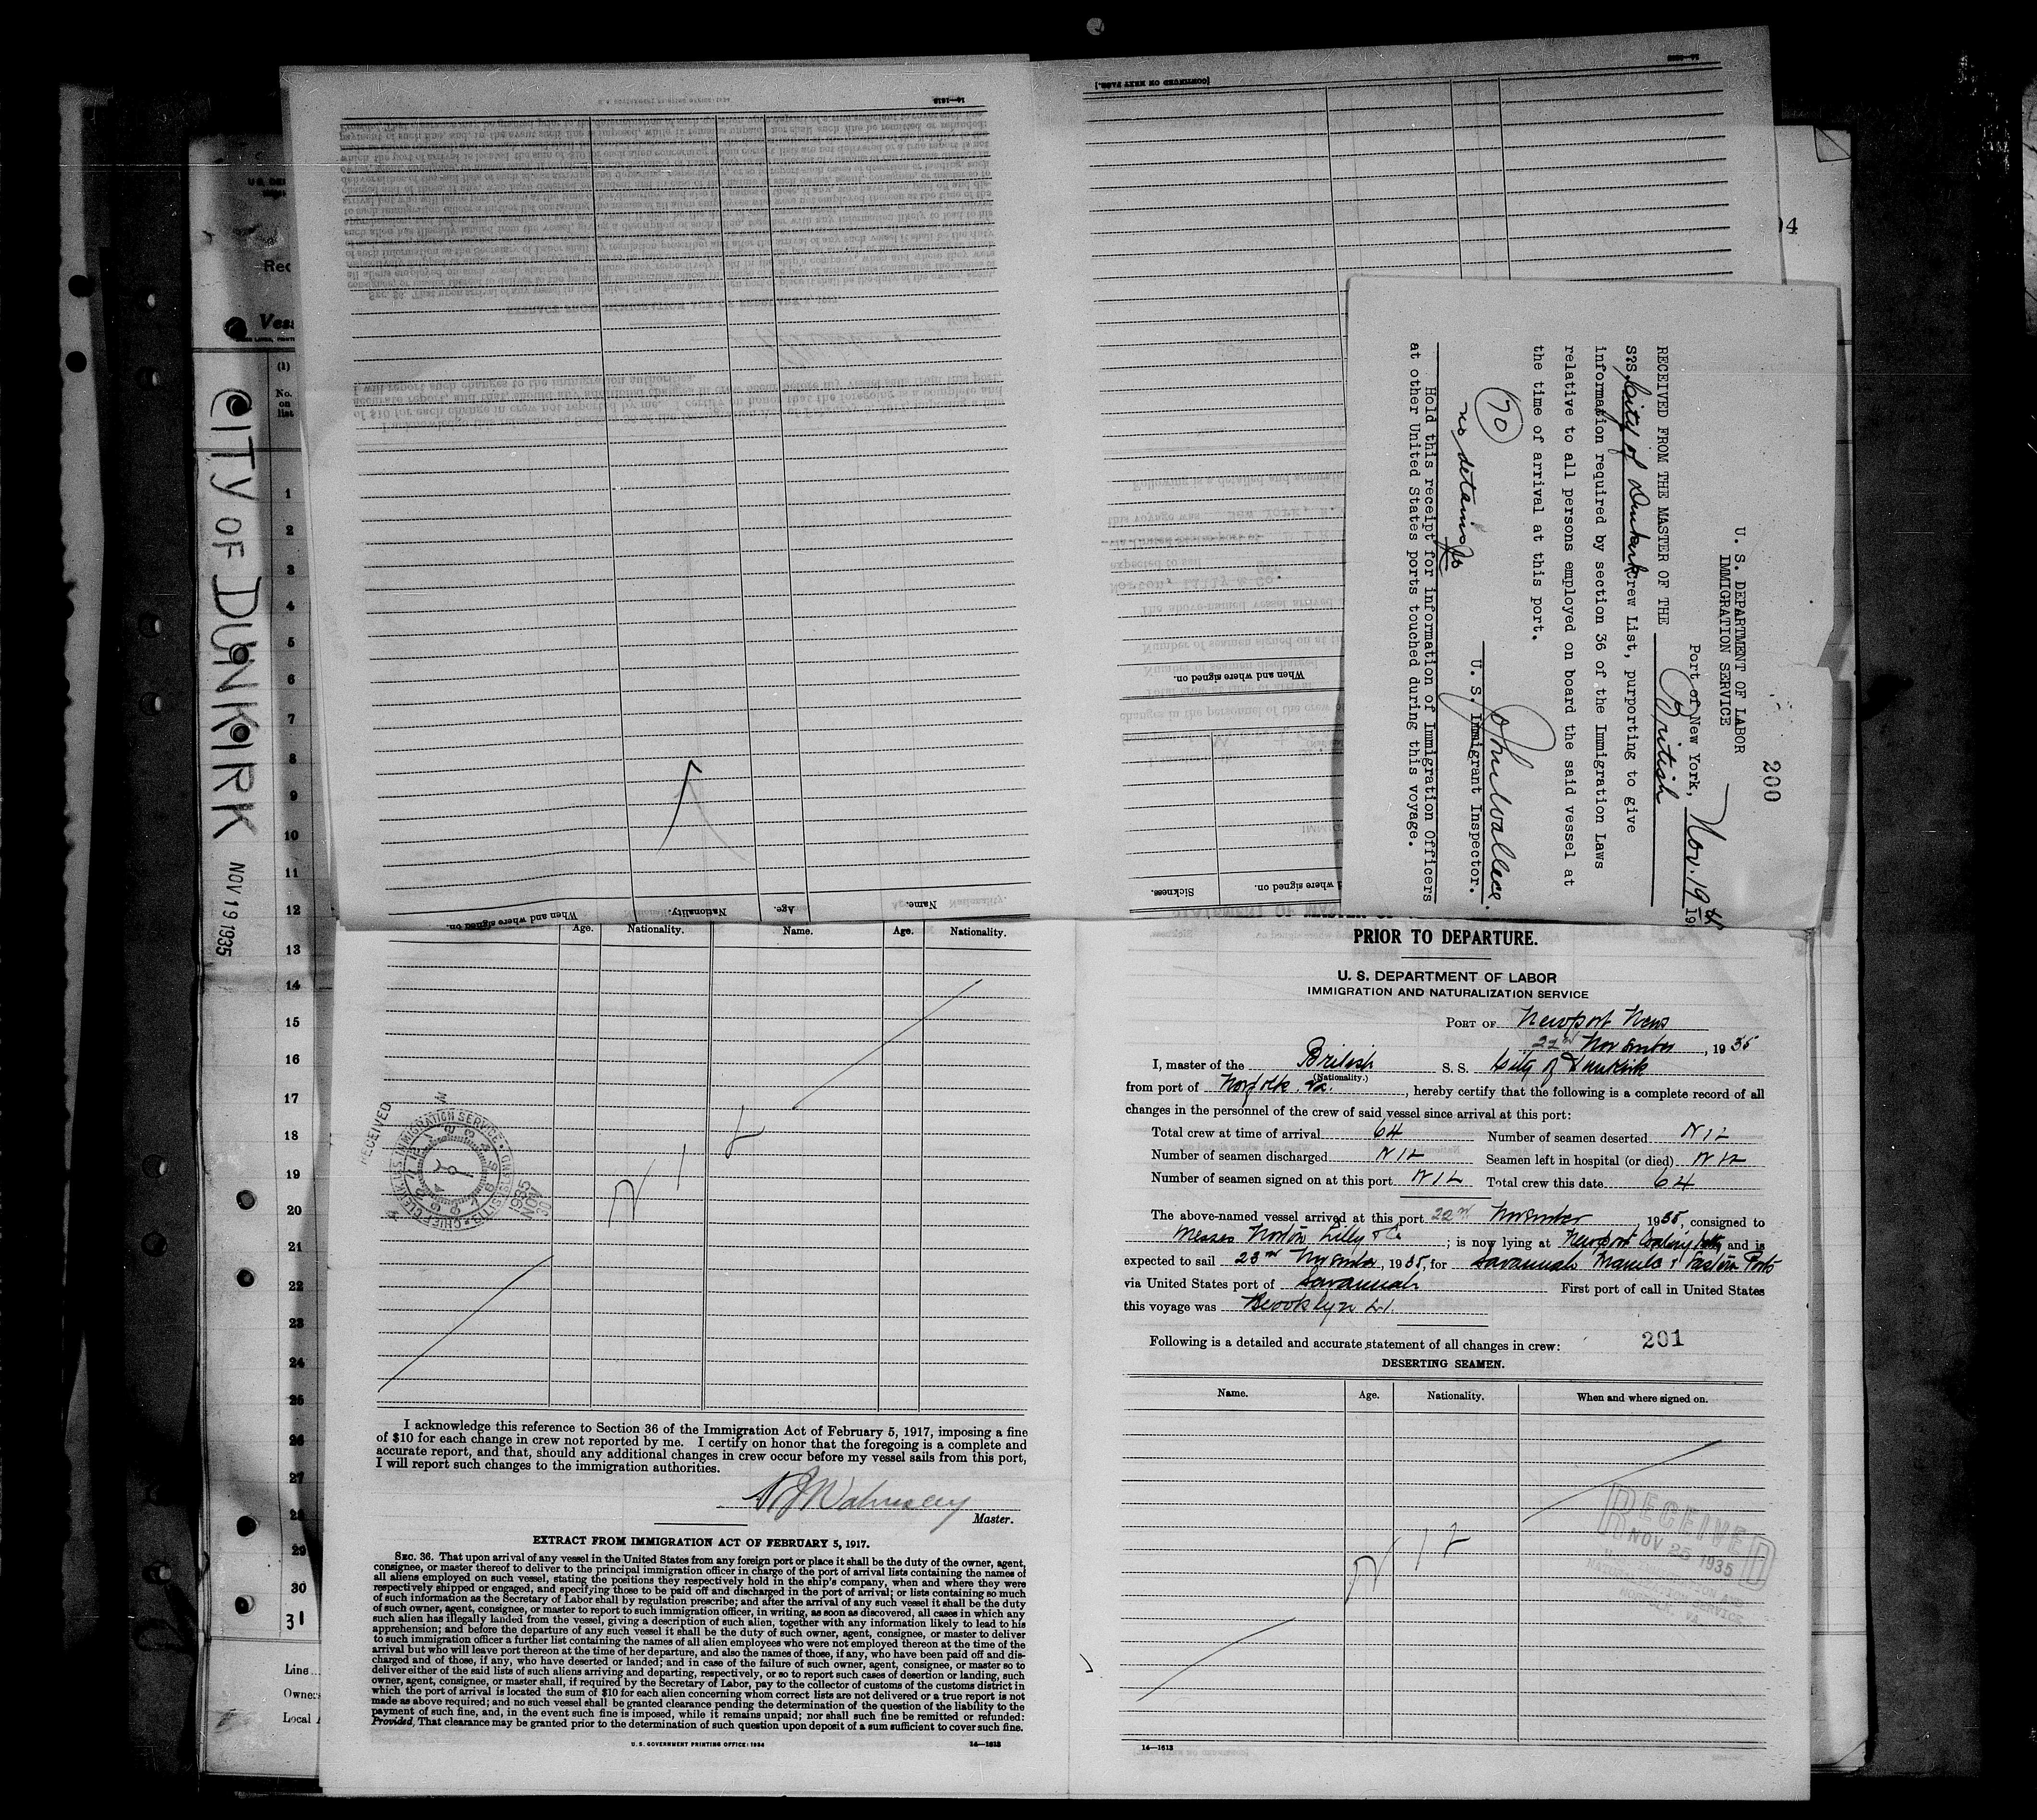 CITY OF DUNKIRK NOV 19 1935
U. S. DEPARTMENT OF LABOR
IMMIGRATION SERVICE
200
Port of New York, Nov. 19
RECEIVED FROM THE MASTER OF THE British
City of Dunkirk Crew List, purporting to give
information required by section 36 of the Immigration Laws
relative to all persons employed on board the said vessel at
the time of arrival at this port.
70
no detained
John Wallace.
U. S. Immigrant Inspector.
Hold this receipt for information of Immigration Officers
at other United States ports touched during this voyage.
[CONTINUED ON NEXT PAGE.]
When and where signed on.
Sickness.
Name.
Age.
Nationality.
When and where signed on.
(1)
No.
on
list
1
2
3
4
5
6
7
8
9
10
11
12
13
14
15
16
17
18
19
20
21
22
23
24
25
26
27
28
29
30
31
Line
Owners
Local
Age. Nationality. Name. Age. Nationality.
NIL
RECEIVED
I acknowledge this reference to Section 36 of the Immigration Act of February 5, 1917, imposing a fine
of $10 for each change in crew not reported by me. I certify on honor that the foregoing is a complete and
accurate report, and that, should any additional changes in crew occur before my vessel sails from this port,
I will report such changes to the immigration authorities.
Walmsley
Master.
EXTRACT FROM IMMIGRATION ACT OF FEBRUARY 5, 1917.
SEC. 36. That upon arrival of any vessel in the United States from any foreign port or place it shall be the duty of the owner, agent,
consignee, or master thereof to deliver to the principal immigration officer in charge of the port of arrival lists containing the names of
all aliens employed on such vessel, stating the positions they respectively hold in the ship's company, when and where they were
respectively shipped or engaged, and specifying those to be paid off and discharged in the port of arrival; or lists containing so much
of such information as the Secretary of Labor shall by regulation prescribe; and after the arrival of any such vessel it shall be the duty
of such owner, agent, consignee, or master to report to such immigration officer, in writing, as soon as discovered, all cases in which any
such alien has illegally landed from the vessel, giving a description of such alien, together with any information likely to lead to his
apprehension; and before the departure of any such vessel it shall be the duty of such owner, agent, consignee, or master to deliver
to such immigration officer a further list containing the names of all alien employees who were not employed thereon at the time of the
arrival but who will leave port thereon at the time of her departure, and also the names of those, if any, who have been paid off and dis-
charged and of those, if any, who have deserted or landed; and in case of the failure of such owner, agent, consignee, or master so to
deliver either of the said lists of such aliens arriving and departing, respectively, or so to report such cases of desertion or landing, such
owner, agent, consignee, or master shall, if required by the Secretary of Labor, pay to the collector of customs of the customs district in
which the port of arrival is located the sum of $10 for each alien concerning whom correct lists are not delivered or a true report is not
made as above required; and no such vessel shall be granted clearance pending the determination of the question of the liability to the
payment of such fine, and, in the event such fine is imposed, while it remains unpaid; nor shall such fine be remitted or refunded:
Provided, That clearance may be granted prior to the determination of such question upon deposit of a sum sufficient to cover such fine.
U. S. GOVERNMENT PRINTING OFFICE: 1934 14—1613
PRIOR TO DEPARTURE.
U. S. DEPARTMENT OF LABOR
IMMIGRATION AND NATURALIZATION SERVICE
PORT OF Newport News
22nd November, 1935
I, master of the British S. S. City of Dunkirk
(Nationality.)
from port of Norfolk Va., hereby certify that the following is a complete record of all
changes in the personnel of the crew of said vessel since arrival at this port:
Total crew at time of arrival 64 Number of seamen deserted NIL
Number of seamen discharged NIL Seamen left in hospital (or died) NIL
Number of seamen signed on at this port NIL Total crew this date 64
The above-named vessel arrived at this port 22nd November 1935, consigned to
Messrs Norton Lilly & Co; is now lying at Newport and is
expected to sail 23rd November, 1935, for Savannah Manila & Eastern Ports
via United States port of Savannah First port of call in United States
this voyage was Brooklyn
Following is a detailed and accurate statement of all changes in crew: 201
DESERTING SEAMEN.
Name. Age. Nationality. When and where signed on.
NIL
RECEIVED
NOV 25 1935
14—1613